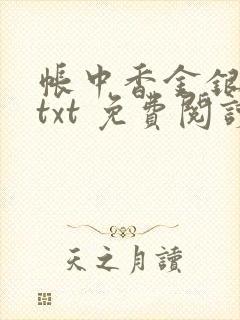 帳中香金銀
txt 免費閱讀
天之月讀